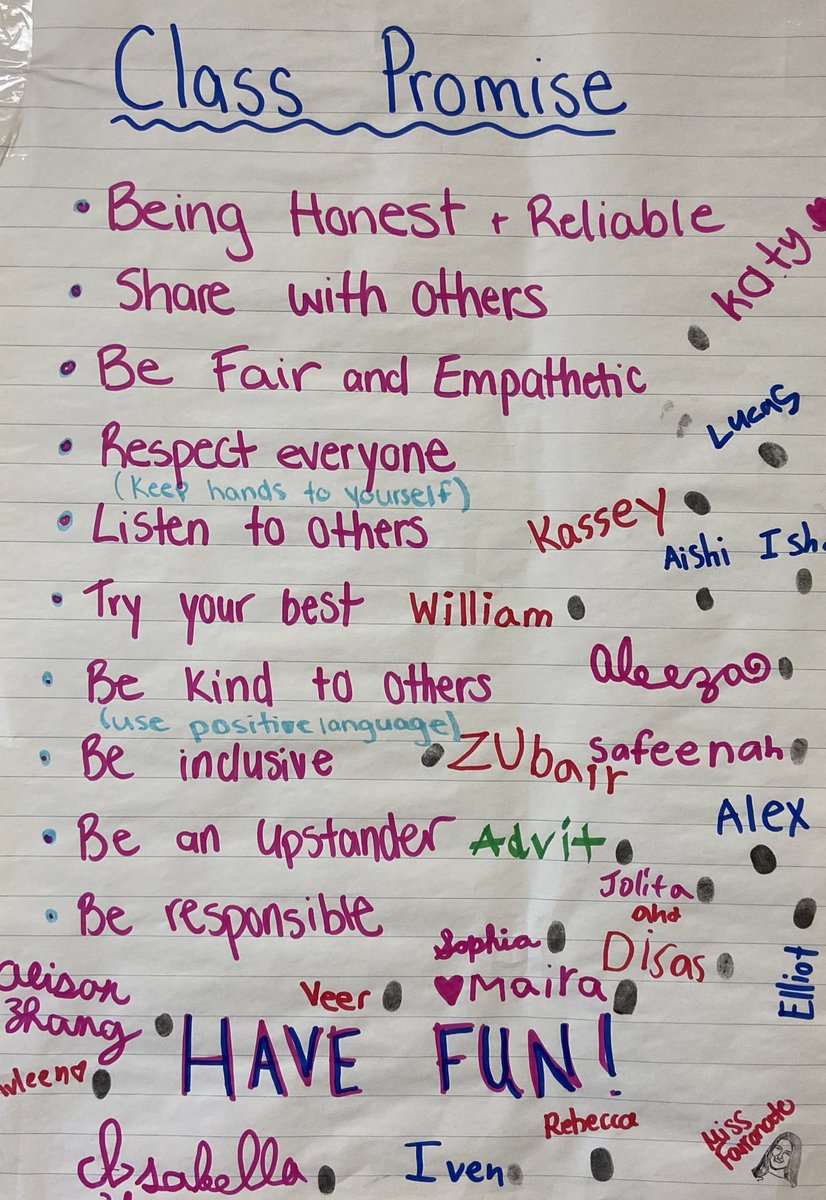 Class Promise
• Being Honest + Reliable
Katy
• Share with others
• Be Fair and Empathetic
Lucas
• Respect everyone
(Keep hands to yourself)
• Listen to others
Kassey
Aishi
• Try your best
William
Aleeza
• Be kind to others
(use positive language)
• Be inclusive
ZUbair
Safeenah
Alex
• Be an Upstander
Advit
Jolita
and
• Be responsible
Sophia
Disas
Elliot
Alison
Zhang
Veer
Maira
HAVE FUN!
Rebecca
Miss
Isabella
Iven